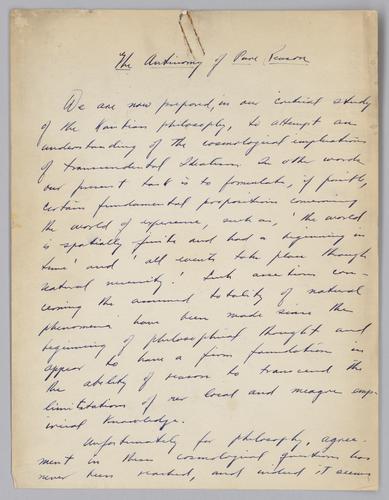 The Antinomy of Pure Reason
We are now prepared, in our critical study
of the Kantian philosophy, to attempt an
understanding of the cosmological implications
of transcendental Idealism. In other words
our present task is to formulate, if possible,
certain fundamental propositions concerning
the world of experience, such as, 'the world
is spatially finite and had a beginning in
time' and 'all events take place through
natural necessity.' Such assertions con-
cerning the assumed totality of natural
phenomena have been made since the
beginning of philosophical thought and
appear to have a firm foundation in
the ability of reason to transcend the
limitations of our local and meagre emp-
irical knowledge.
Unfortunately for philosophy, agree-
ment in these cosmological questions has
never been reached, and indeed it seems